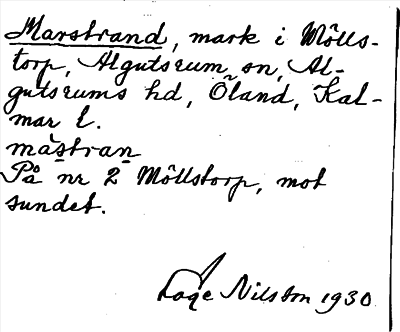 Marstrand, mark i Mölls-
torp, Algutsrum sn, Al-
gutsrums hd, Öland, Kal-
mar l.
mastran
På nr 2 Möllstorp, mot
sundet.
Lage Nilsson 1930